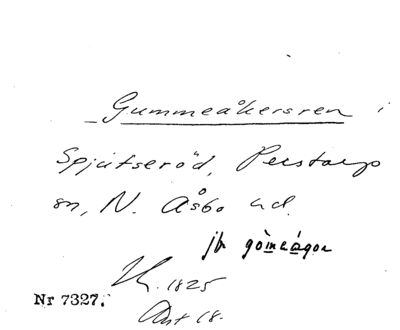 Gummeåkersren i
Spjutseröd, Perstorp
sn, N. Åsbo hd.
jb gòmeágor
1825
Nr 7327.
Akt 18.